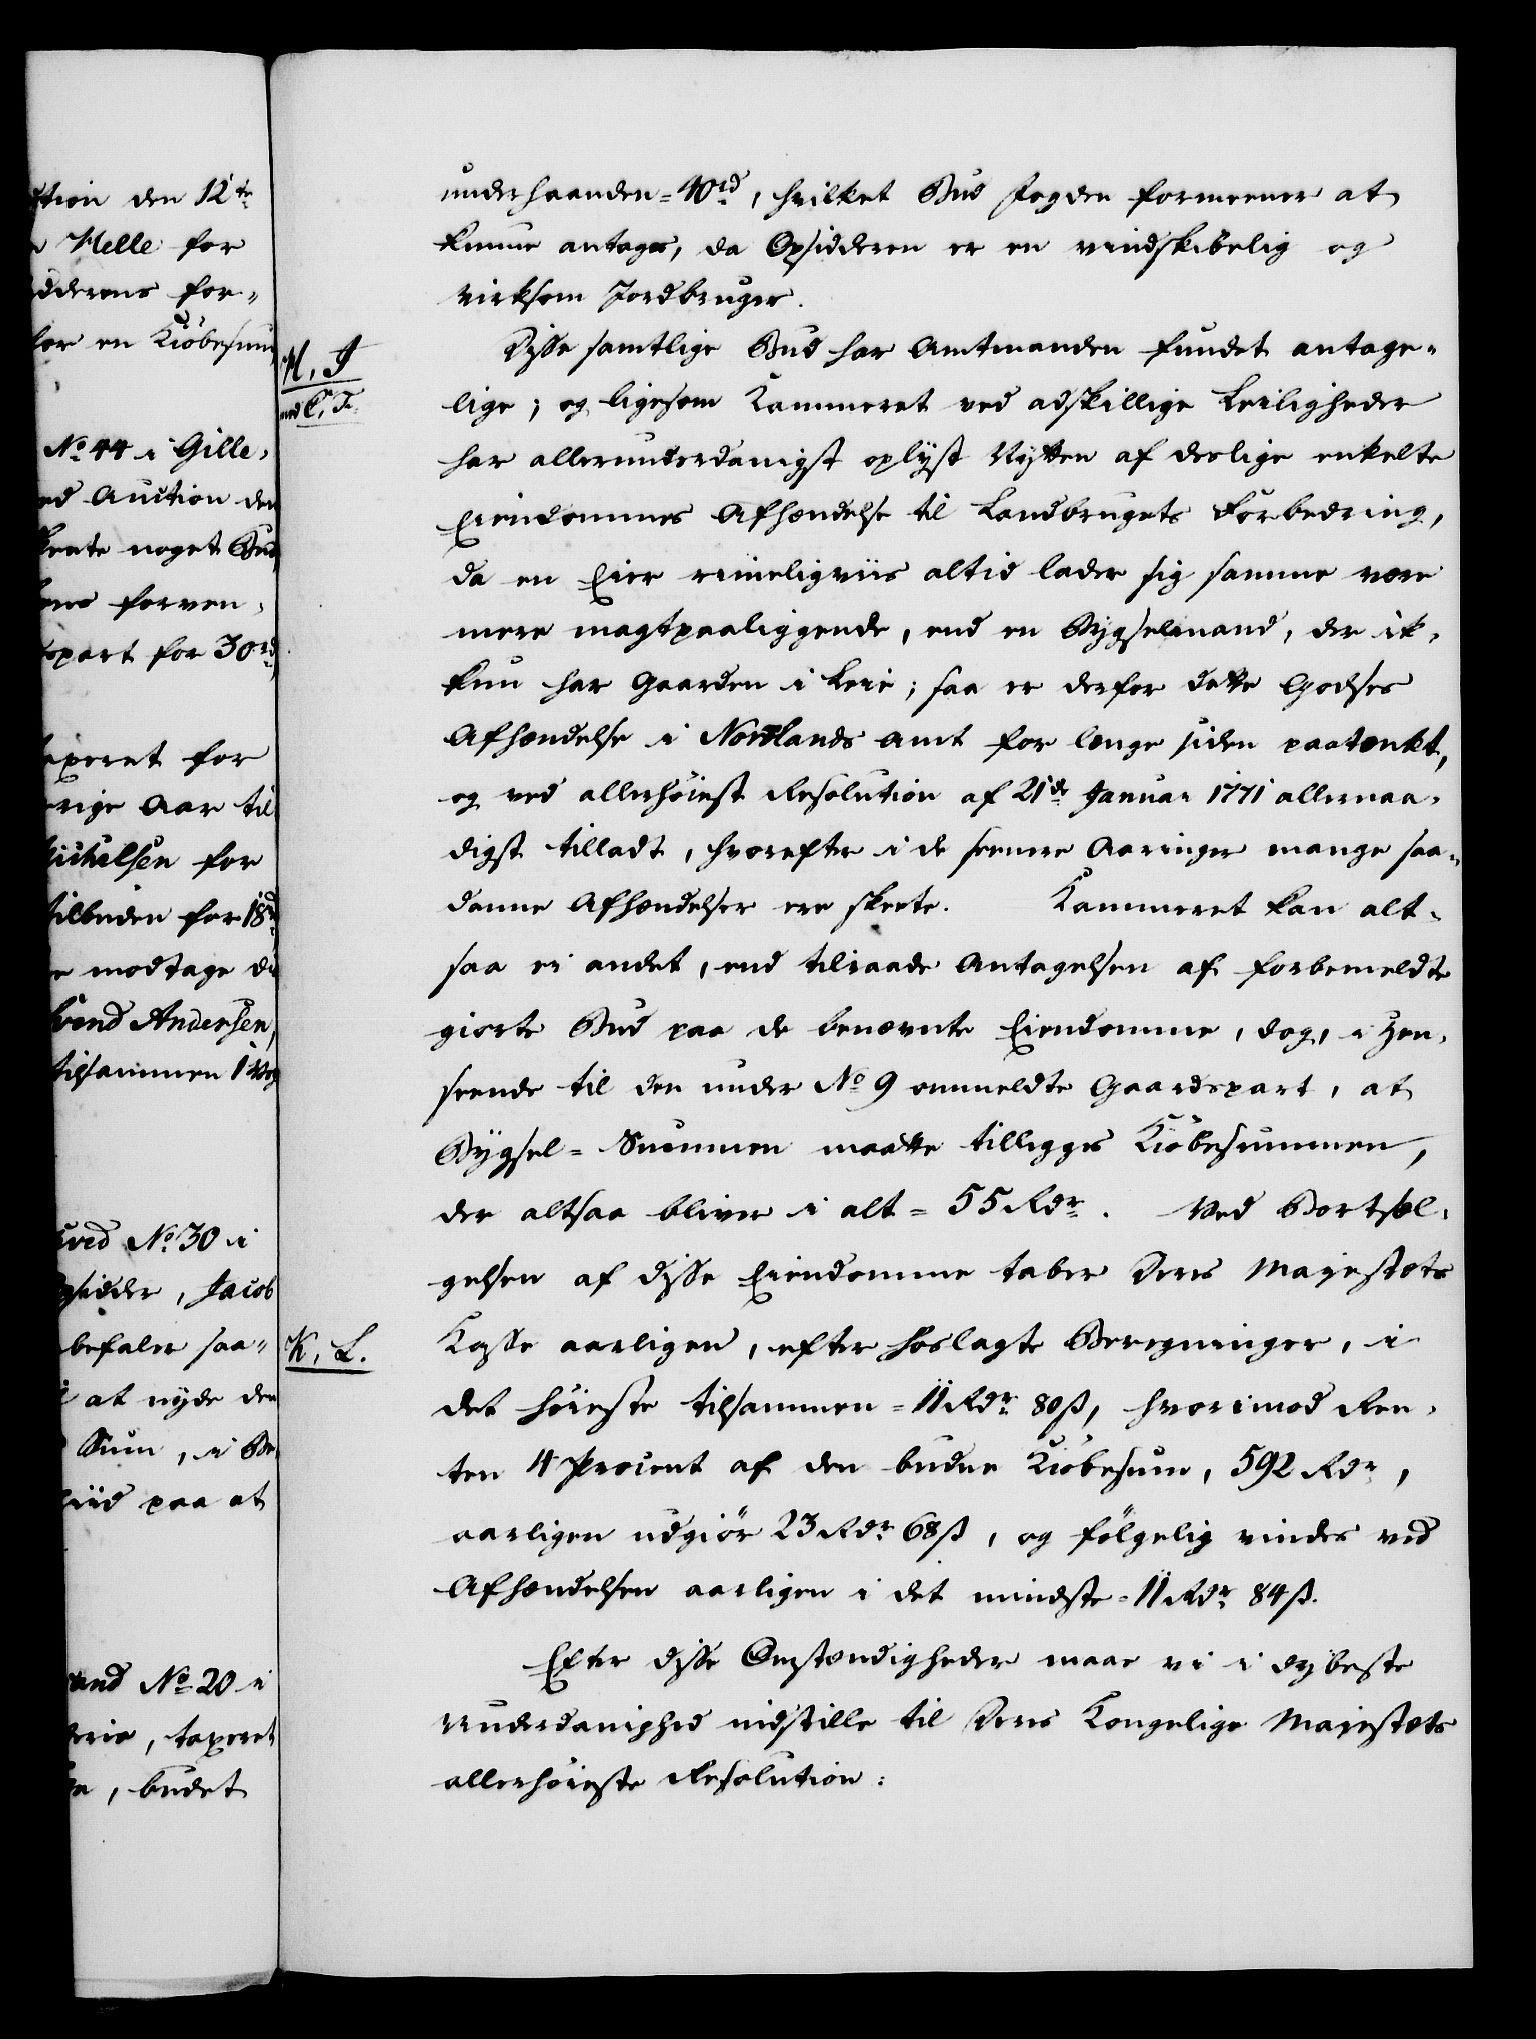 ction den 12te
Melle for
dderens for-
for en Kiöbesum
No 44 i Gille-
ed Auction den
skeete noget Bud
ens forven-
spart for 30rd
taxeret for
rige Aar til
Michelsen for
tilbuden for 18rd
modtage di
Svend Andersen,
tilsammen 1 Vog
No 30 i
psidder, Jacob
befaler saa-
at nyde den
Sum, i Be-
Liid paa at
No 20 i
taxeret
budet
underhaanden = 40rd, hvilket Bud Fogden formeener at
kunne antages, da Opsidderen er en vindskibelig og
virksom Jordbruger.
H, I
med C. T.
Disse samtlige Bud har Amtmanden fundet antage-
lige; og ligesom Kammeret ved adskillige Leiligheder
har allerunderdanigst oplyst Nytten af deslige enkelte
Eiendommes Afhændelse til Landbrugets Forbedring,
da en Eier rimeligviis altid lader sig samme være
mere magtpaaliggende, end en Bygselmand, der ik-
kun har Gaarden i Leie; saa er derfor dette Godses
Afhændelse i Nordlands Amt for længe siden paatænkt,
og ved allerhöiest Resolution af 21de Januar 1771 allernaa-
digst tilladt, hvorefter i de seenere Aaringer mange saa-
danne Afhændelser ere skeete. Kammeret kan alt-
saa ei andet, end tilraade Antagelsen af forbemeldte
giorte Bud paa de benævnte Eiendomme, dog, i Hen-
seende til den under No 9 ommeldte Gaardspart, at
Bygsel-Summen maatte tillegges Kiöbesummen,
der altsaa bliver i alt = 55 Rdr. Ved Bortsæl-
gelsen af disse Eiendomme taber Deres Majestæts
K, L.
Kasse aarligen, efter hoslagte Beregninger, i
det höieste tilsammen = 11 Rdr 80 ß, hvorimod Ren-
ten 4 Procent af den budne Kiöbesum, 592 Rdr,
aarligen udgiör 23 Rdr 68 ß, og fölgelig vindes ved
Afhændelsen aarligen i det mindste = 11 Rdr 84 ß.
Efter disse Omstændigheder maae vi i dybeste
Underdanighed indstille til Deres Kongelige Majestæts
allerhöieste Resolution: